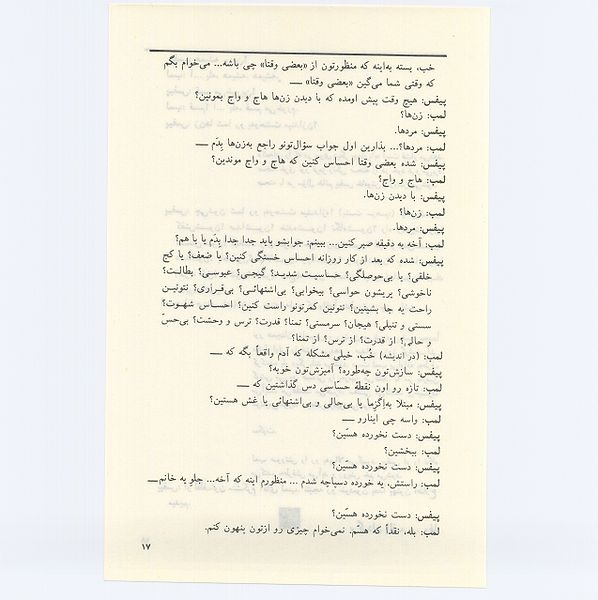 خب، بسته به‌اینه که منظورتون از «بعضی وقتا» چی باشه... می‌خوام بگم
که وقتی شما می‌گین «بعضی وقتا» ــــ
پیفس: هیچ وقت پیش اومده که با دیدن زن‌ها هاج و واج بمونین؟
لمب: زن‌ها؟
پیفس: مردها.
لمب: مردها؟... بذارین اول جواب سؤال‌تونو راجع به‌زن‌ها بِدَم ــــ
پیفس: شده بعضی وقتا احساس کنین که هاج و واج موندین؟
لمب: هاج و واج؟
پیفس: با دیدن زن‌ها.
لمب: زن‌ها؟
پیفس: مردها.
لمب: آخه یه دقیقه صبر کنین... ببینم: جوابشو باید جدا جدا بِدَم یا با هم؟
پیفس: شده که بعد از کار روزانه احساس خستگی کنین؟ یا ضعف؟ یا کج
خلقی؟ یا بی‌حوصلگی؟ حساسیت شدید؟ گیجی؟ عبوسی؟ بطالت؟
ناخوشی؟ پریشون حواسی؟ بیخوابی؟ بی‌اشتهائی؟ بی‌قراری؟ نتونین
راحت یه جا بشینین؟ نتونین کمرتونو راست کنین؟ احساس شهوت؟
سستی و تنبلی؟ هیجان؟ سرمستی؟ تمنا؟ قدرت؟ ترس و وحشت؟ بی‌حسّ
و حالی؟ از قدرت؟ از ترس؟ از تمنا؟
لمب: (در اندیشه) خُب، خیلی مشکله که آدم واقعاً بگه که ــــ
پیفس: سازش‌تون چه‌طوره؟ آمیزش‌تون خوبه؟
لمب: تازه رو اون نقطهٔ حسّاسی دس گذاشتین که ــــ
پیفس: مبتلا به‌اِگزِما یا بی‌حالی و بی‌اشتهائی یا غش هستین؟
لمب: واسه چی اینارو ــــ
پیفس: دست نخورده هسّین؟
لمب: ببخشین؟
پیفس: دست نخورده هسّین؟
لمب: راستش، یه خورده دسپاچه شدم ... منظورم اینه که آخه... جلو یه خانم ــــ
پیفس: دست نخورده هسّین؟
لمب: بله، نقداً که هسّم. نمی‌خوام چیزی رو ازتون پنهون کنم.
۱۷